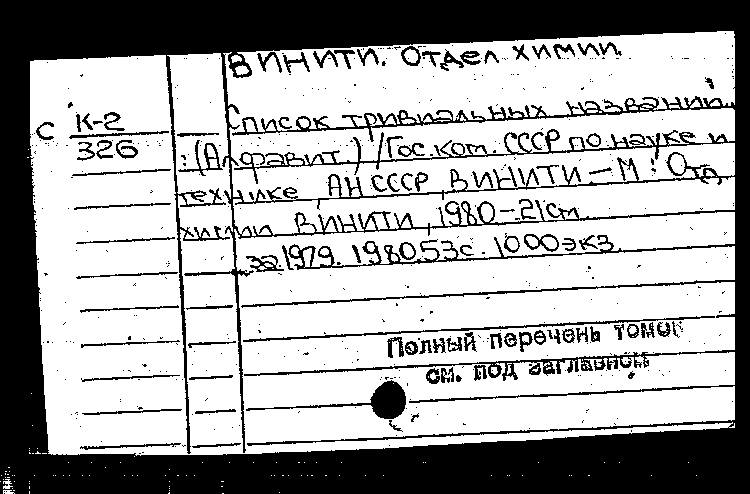 ВИНИТИ. Отдел химии.
С К-2
326
Список тривиальных названий
: (Алфавит.) / Гос. ком. СССР по науке и
технике, АН СССР, ВИНИТИ – М : Отд.
химии ВИНИТИ, 1980 – 21 см.
за 1979. 1980. 53с. 1000 экз.
Полный перечень томов
см. под заглавием